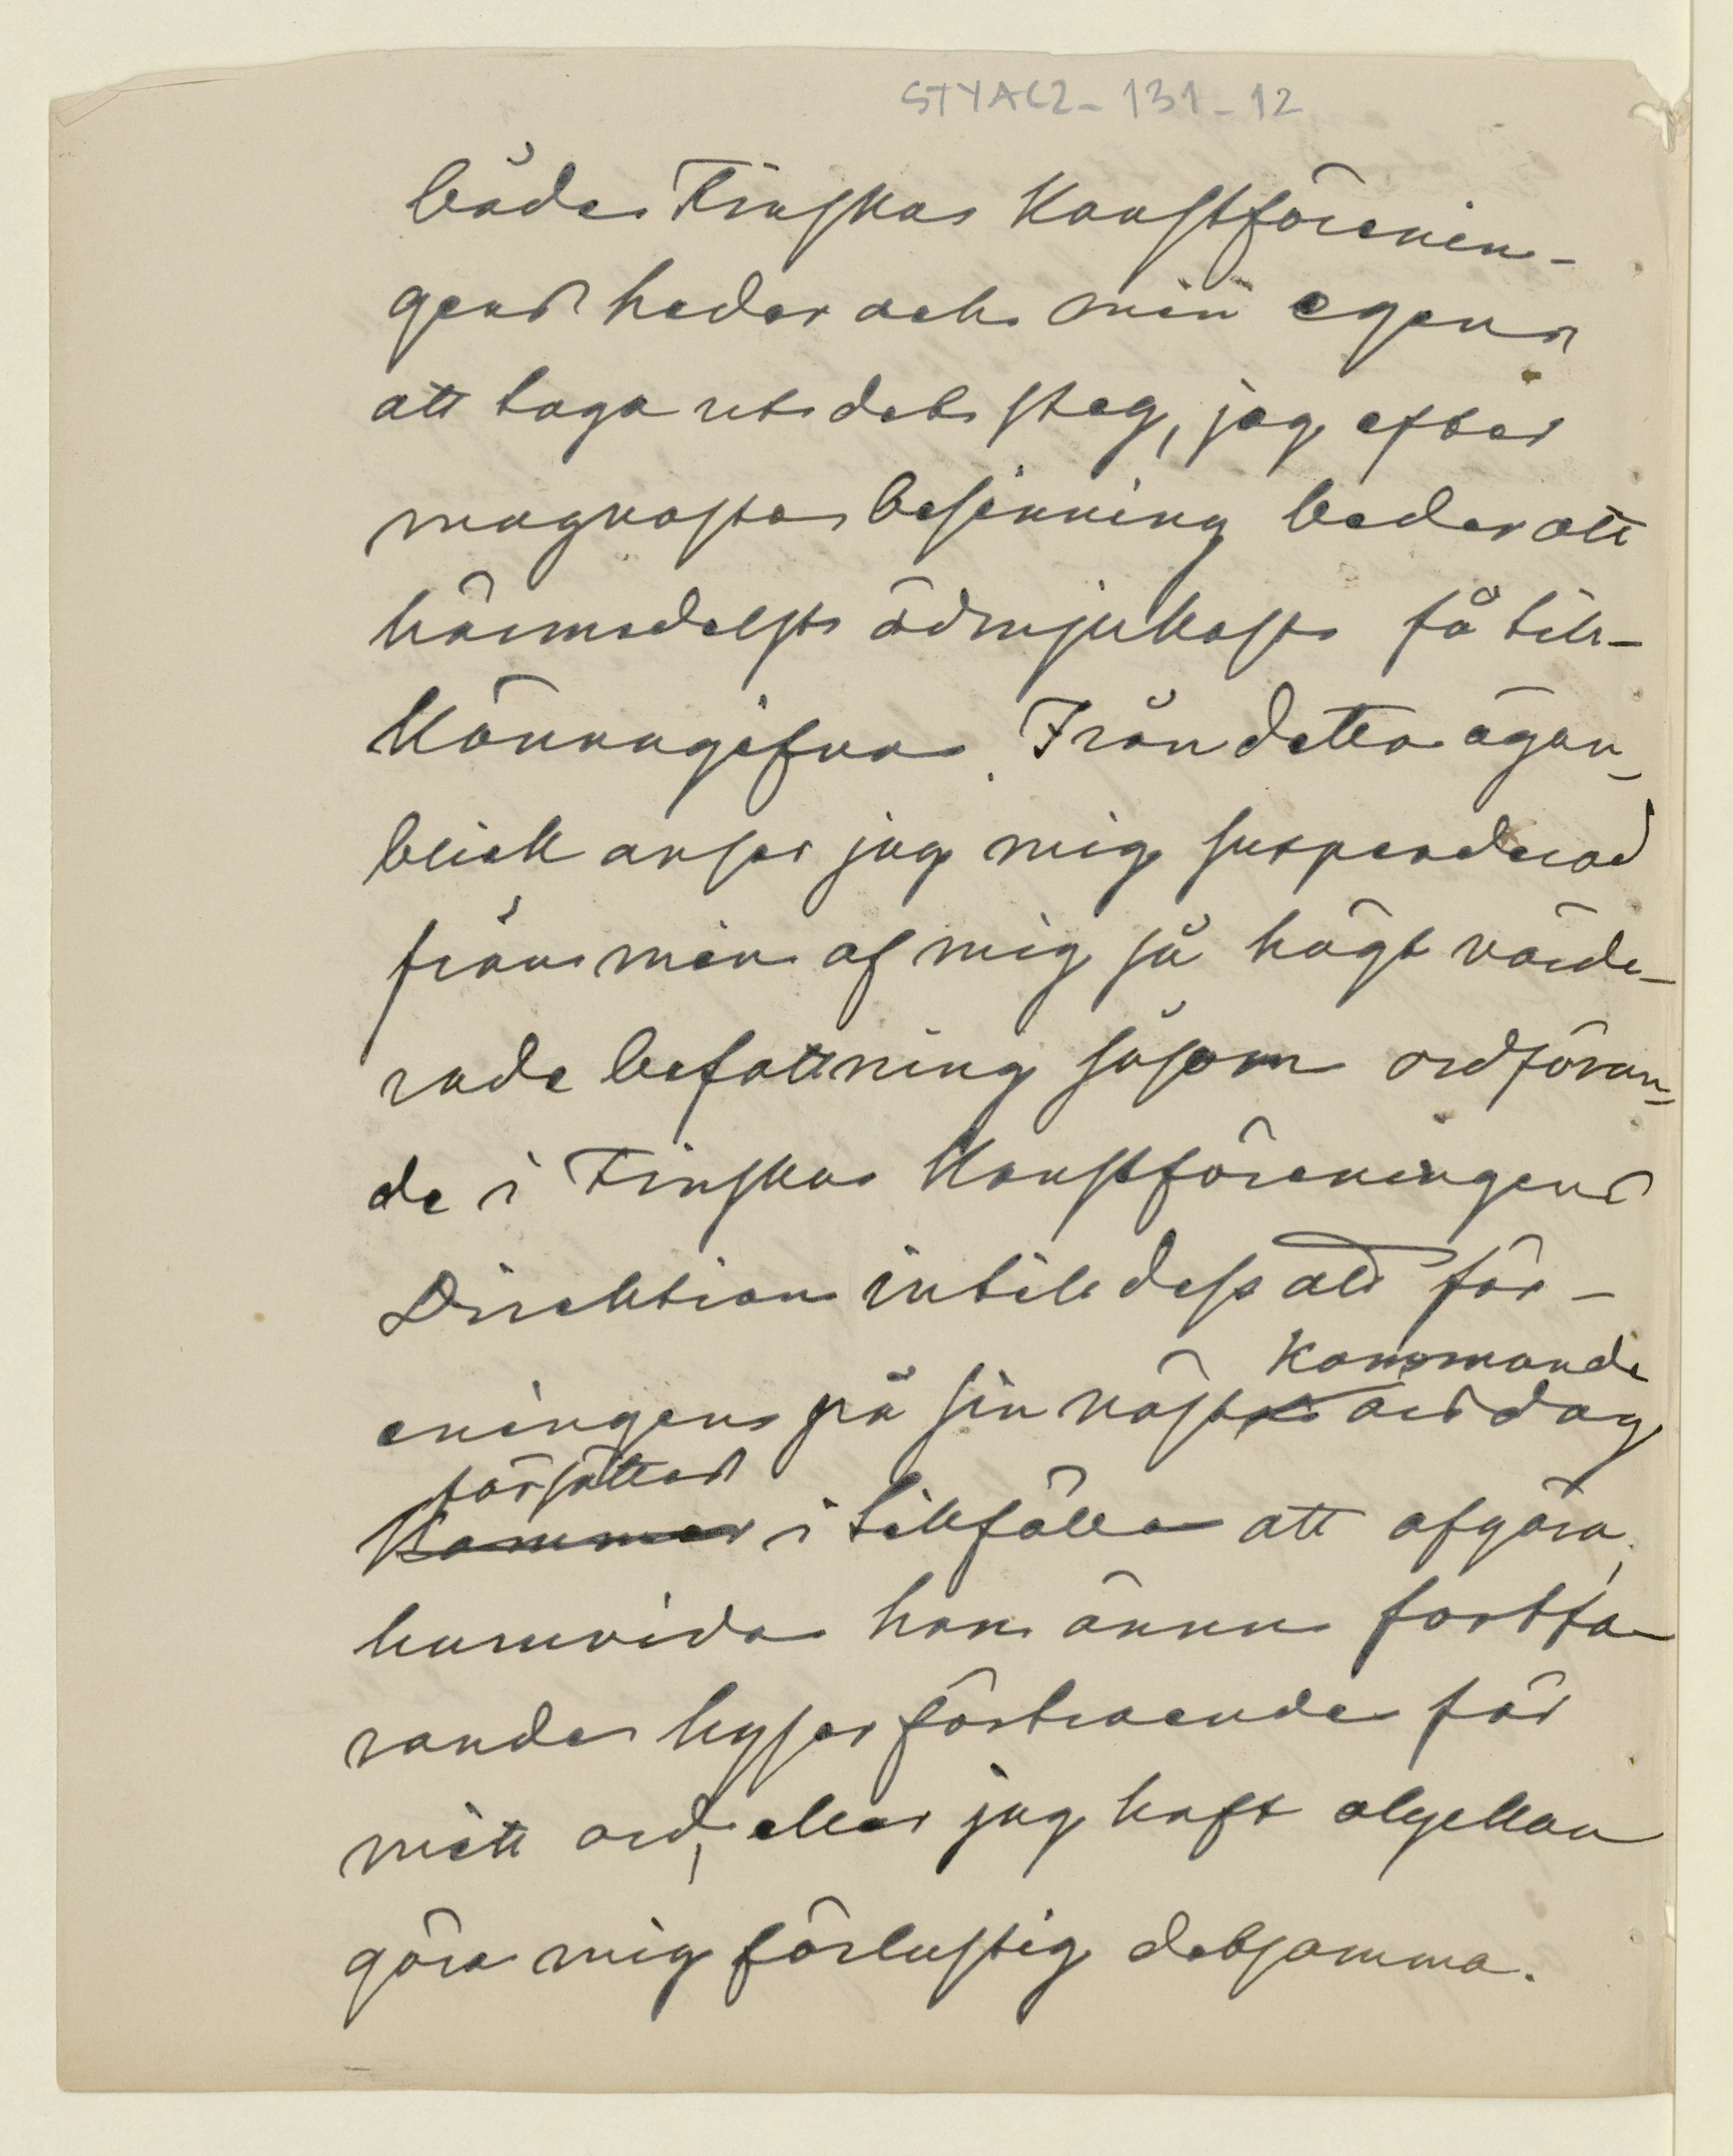 STYAC2-131-12
både Finska Konstförenin-
gens heder och min egen
att taga ut det steg, jag efter
mognaste besinning beder att
härmedelst ödmjukast få till-
kännagifva. Från detta ögon-
blick anser jag mig suspenderad
från min af mig så högt värde-
rade befattning såsom ordföran-
de i Finska Konstföreningens
Direktion intill dess att för-
kommande
eningen på sin nästa årsdag
försättes
kommer i tillfälle att afgöra,
huruvida hon ännu fortfa-
rande hyser förtroende för
mitt ord, eller jag haft olyckan
göra mig förlustig detsamma.